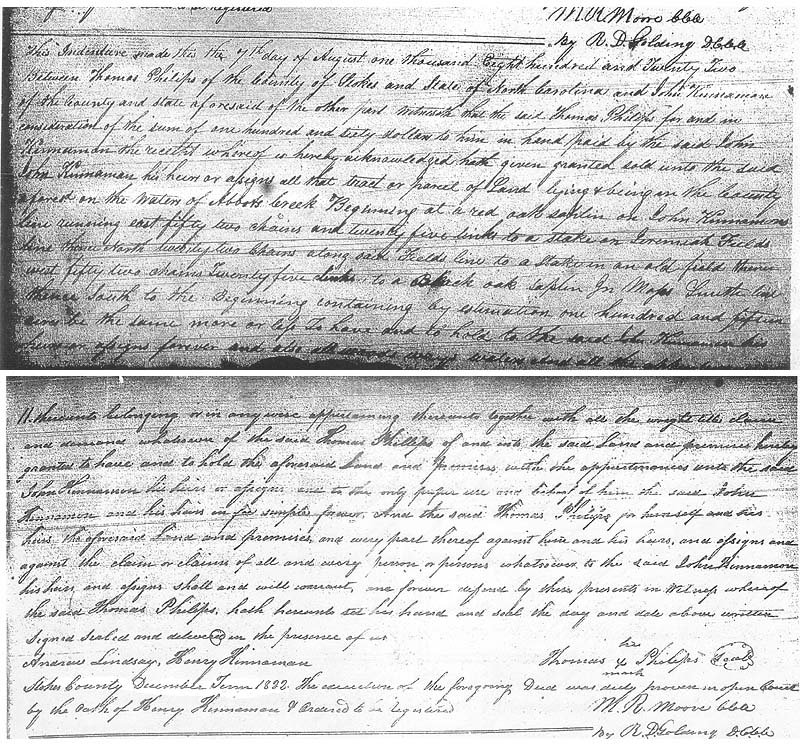 registered
M R Moore CCC
By R. D. Golding D.C.C.C.
This Indenture made this the 7th day of August one thousand Eight hundred and Twenty Two
Between Thomas Philips of the County of Stokes and State of North Carolina and John Kinnaman
of the County and state aforesaid of the other part Witnesseth that the said Thomas Philips for and in
consideration of the sum of one hundred and sixty dollars to him in hand paid by the said John
Kinnaman the receipt whereof is hereby acknowledged hath given granted sold unto the said
John Kinnaman his heirs or assigns all that tract or parcel of Land lying & being in the County
aforesd on the Waters of Abbotts Creek Beginning at a red oak saplin on John Kinnamons
line running east fifty two chains and twenty five links to a stake on Jeremiah Fields
line thence North twenty two Chains along said Fields line to a Stake in an old field thence
west fifty two chains Twenty five links to a Black oak saplin In Moses Smiths line
thence South to the Beginning containing by estimation one hundred and fifteen
acres be the same more or less To have and to hold to the said John Kinnaman his
heirs or assigns forever and also all woods ways waters and all the
thereunto belonging or in any wise appertaining thereunto together with all the wright title claim
and demand whatsoever of the said Thomas Phillips of and into the said Land and premises hereby
granted to have and to hold the aforesaid Land and Premises with the appertinances unto the said
John Kinnamon his heirs or assigns and to the only proper use and behoof of him the said John
Kinnamon and his heirs in fee simple forever. And the said Thomas Philips for himself and his
heirs the aforesaid Land and premises, and every part thereof against him and his heirs, and assigns and
against the claim or claims of all and every person or persons whatsoever to the said John Kinnamon
his heirs and assigns shall and will warrant, and forever defend by these presents in Witness whereof
the said Thomas Philips, hath hereunto set his hand and seal the day and date above written
Signed Sealed and delivered in the presence of us
Andrew Lindsay, Henry Kinnaman
his
Thomas x Philips Seal
mark
Stokes County December Term 1822 The execution of the foregoing Deed was duly proven in open Court
by the oath of Henry Kinnaman & Ordered to be registered
M. R. Moore CCC
By R. D. Golding D.C.C.C.